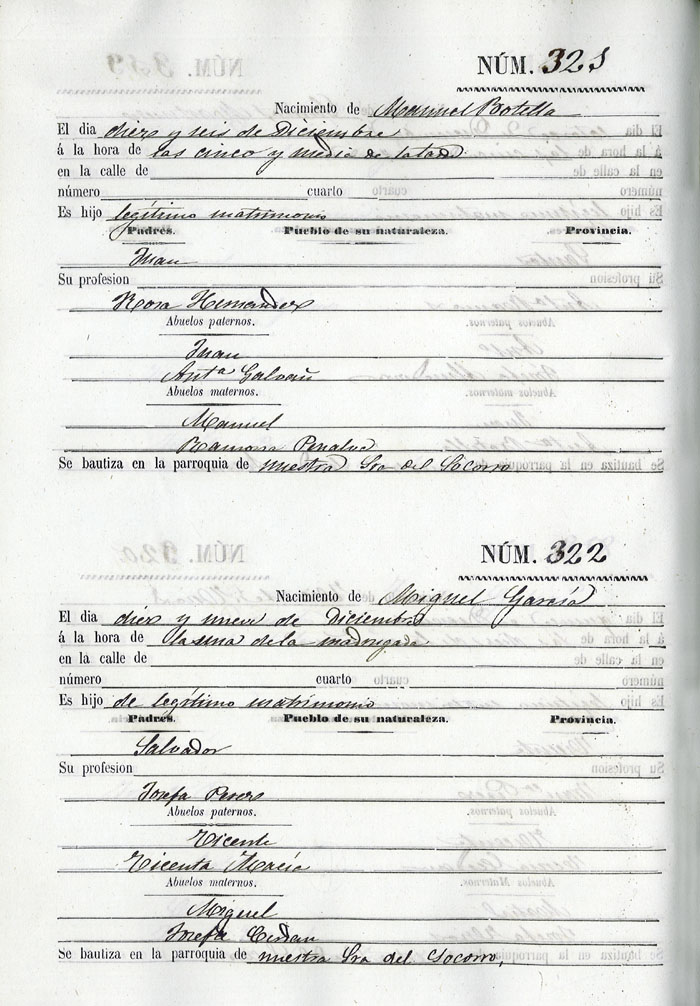 NÚM. 321
Nacimiento de Manuel Botella
El dia diez y seis de Diciembre
á la hora de las cinco y media de la tarde
en la calle de
número cuarto
Es hijo legítimo matrimonio
Padres. Pueblo de su naturaleza. Provincia.
Juan
Su profesion
Rosa Hernandez
Abuelos paternos.
Juan
Antª Galvañ
Abuelos maternos.
Manuel
Ramona Penalva
Se bautiza en la parroquia de nuestra Sra del Socorro
NÚM. 322
Nacimiento de Miguel García
El dia diez y nueve de Diciembre
á la hora de la una de la madrugada
en la calle de
número cuarto
Es hijo de legítimo matrimonio
Padres. Pueblo de su naturaleza. Provincia.
Salvador
Su profesion
Josefa Perez
Abuelos paternos.
Vicente
Vicenta Macía
Abuelos maternos.
Miguel
Josefa
Se bautiza en la parroquia de nuestra Sra del Socorro,